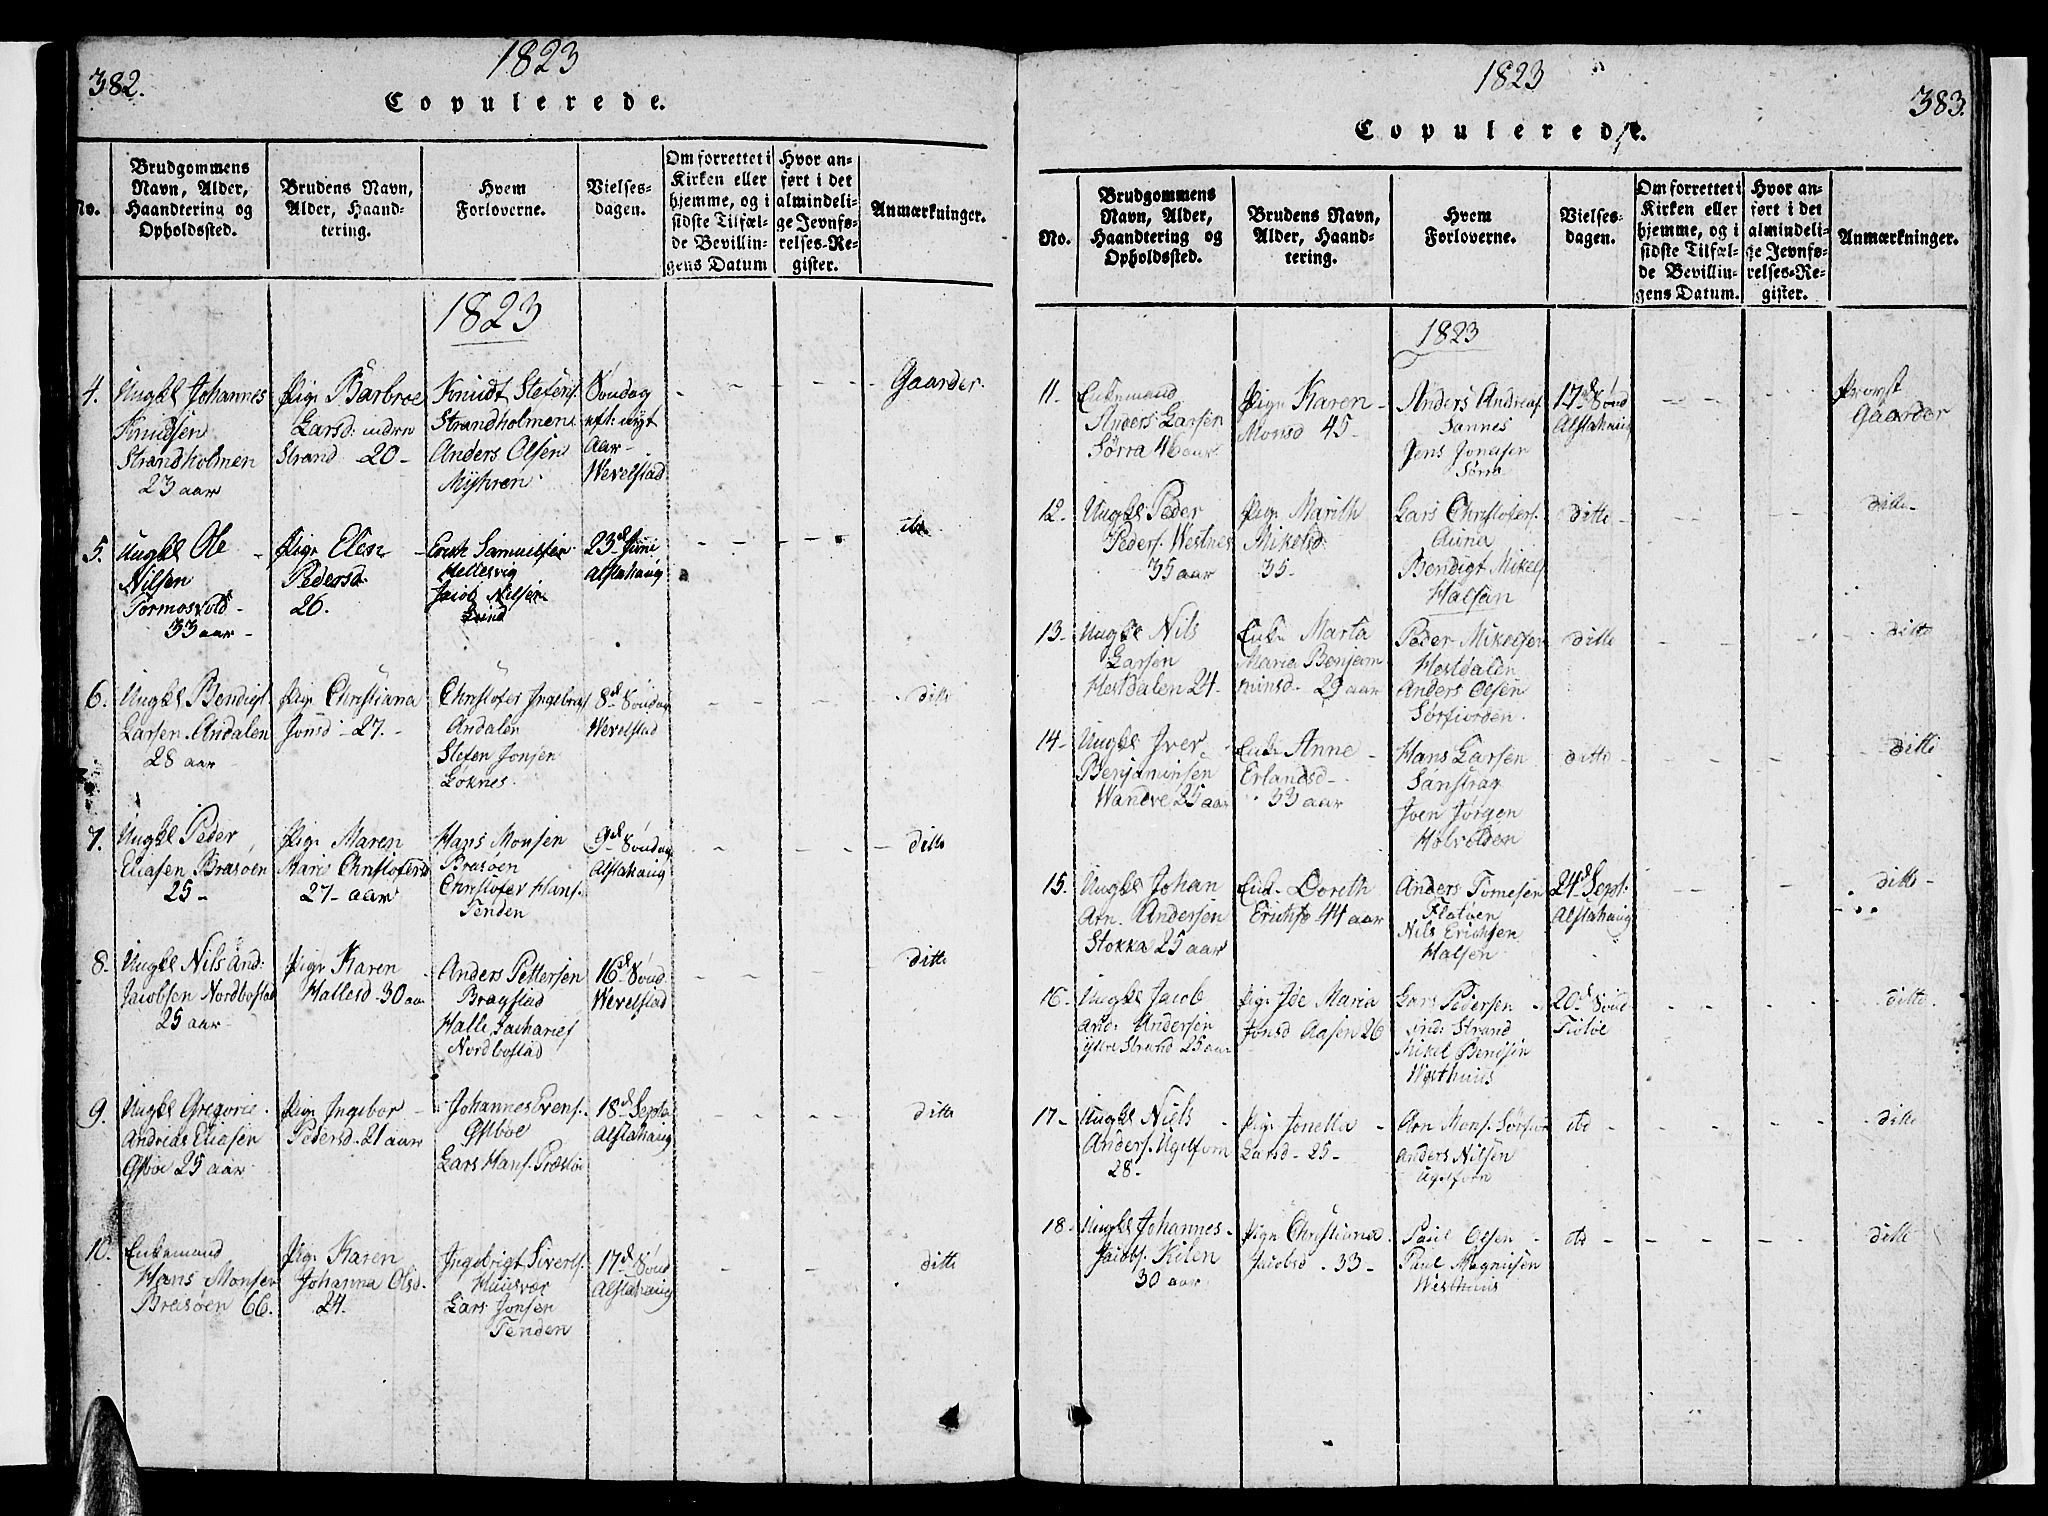 382.
1823
Copulerede.
No.
Brudgommens
Navn, Alder,
Haandtering og
Opholdssted.
Brudens Navn,
Alder, Haand-
tering.
Hvem
Forloverne.
Vielses-
dagen.
Om forrettet i
Kirken eller
hjemme, og i
sidste Tilfæl-
de Bevillin-
gens Datum
Hvor an-
ført i det
almindeli-
ge Jevnfø-
relses-Re-
gister.
Anmærkninger.
1823
4.
Ungkl Johannes
Knudsen
Strandholmen
23 aar
Pige Barbroe
Larsd: indre
Strand 20
Knudt Stefens.
Strandholmen
Anders Olsen
Myhren
Søndag
eft: nyt
Aar
Wevelstad
Gaarder
5.
Ungkl Ole
Nilsen
Tormosvold
33 aar
Pige Elen
Pedersd
26.
Erich Samuelsen
Hellesvig
Jacob Nilsen
23d Juni
Alstahaug
6.
Ungkl Bendigt
Larsen Andalen
28 aar
Pige Christiana
Jonsd 27.
Christofer Ingebrigts
Andalen
Stefen Jonsen
Løknes
8d Søndag
Wevelstad
ditto
7.
Ungkl Peder
Eliasen Brasøen
25
Pige Maren
Maria Christofersd
27 aar
Hans Monsen
Brasøen
Christofer Hans.
Tenden
9d Søndag
Alstahaug
ditto
8.
Ungkl Nils And:
Jacobsen Nordbostad
25 aar
Pige Karen
Hallesd 30 aar
Anders Pettersen
Bragstad
Halle Zacharies
Nordbostad
16d Sønd
Wevelstad
ditto
9.
Ungkl Gregorie
Andreas Eliasen
25 aar
Pige Ingebor
Pedersd 21 aar
Johannes Evens.
Lars Hans. Præstøe
18d Septb
Alstahaug
ditto
10.
Enkemand
Hans Monsen
Breisøen 66.
Pige Karen
Johanna Olsd.
24.
Ingebrigt Siverts.
Huusvær
Lars Jonsen
Tenden
17d Sønd
Alstahaug
ditto
1823
383.
Copulerede.
No.
Brudgommens
Navn, Alder,
Haandtering og
Opholdssted.
Brudens Navn,
Alder, Haand-
tering.
Hvem
Forloverne.
Vielses-
dagen.
Om forrettet i
Kirken eller
hjemme, og i
sidste Tilfæl-
de Bevillin-
gens Datum.
Hvor an-
ført i det
almindeli-
ge Jevnfø-
relses-Re-
gister.
Anmærkninger.
1823
11.
Enkemand
Anders Larsen
Sørra 46 aar
Pige Karen
Monsd 45
Anders Andreas
Sannes
Jens Jonesen
Sørra
17d Sønd
Alstahaug
Provst
Gaarder
12.
Ungkl Peder
Peders. Westnes
35 aar
Pige Marith
Mikelsd
35
Lars Christofers.
Auna
Bendigt Mikels
Halsan
ditto
ditto
13
Ungkl Nils
Larsen
Hestdalen 24
Enke Marta
Maria Benjam
minsd 29 aar
Peder Mikelsen
Hestdalen
Anders Olsen
Sørfiorden
ditto
ditto
14
Ungkl Iver
Benjaminsen
Wandve 25 aar
Enke Anne
Erlandsd
33 aar
Hans Larsen
Sanstrax
Joen Jørgen
Holvolden
ditto
ditto
15.
Ungkl Johan
Arn. Andersen
Stokka 25 aar
Enk. Doreth
Erichsd 44 aar
Anders Tomesen
Flatøen
Nils Erichsen
Halsen
24d Sept:
Alstahaug
ditto
16
Ungkl Jacob
And: Andersen
ytre Strand 25 aar
Pige Ide Maria
Jonsd Aasen 26
Lars Pedersen
ind: Strand
Mikel Bendsen
Westhuus
20d Sønd
Tiøtøe
ditto
17
Ungkl Niels
Anders. Ugelfom
28
Pige Jonetta
Larsd 25
Arn Mons. Sørfior
Anders Nilsen
itd
ditto
18
Ungkl Johannes
Jacobs. Kilen
30 aar
Pige Christiana
Jacobsd 33
Paul Olsen
Paul Magnusen
Westhuus
itd
ditto